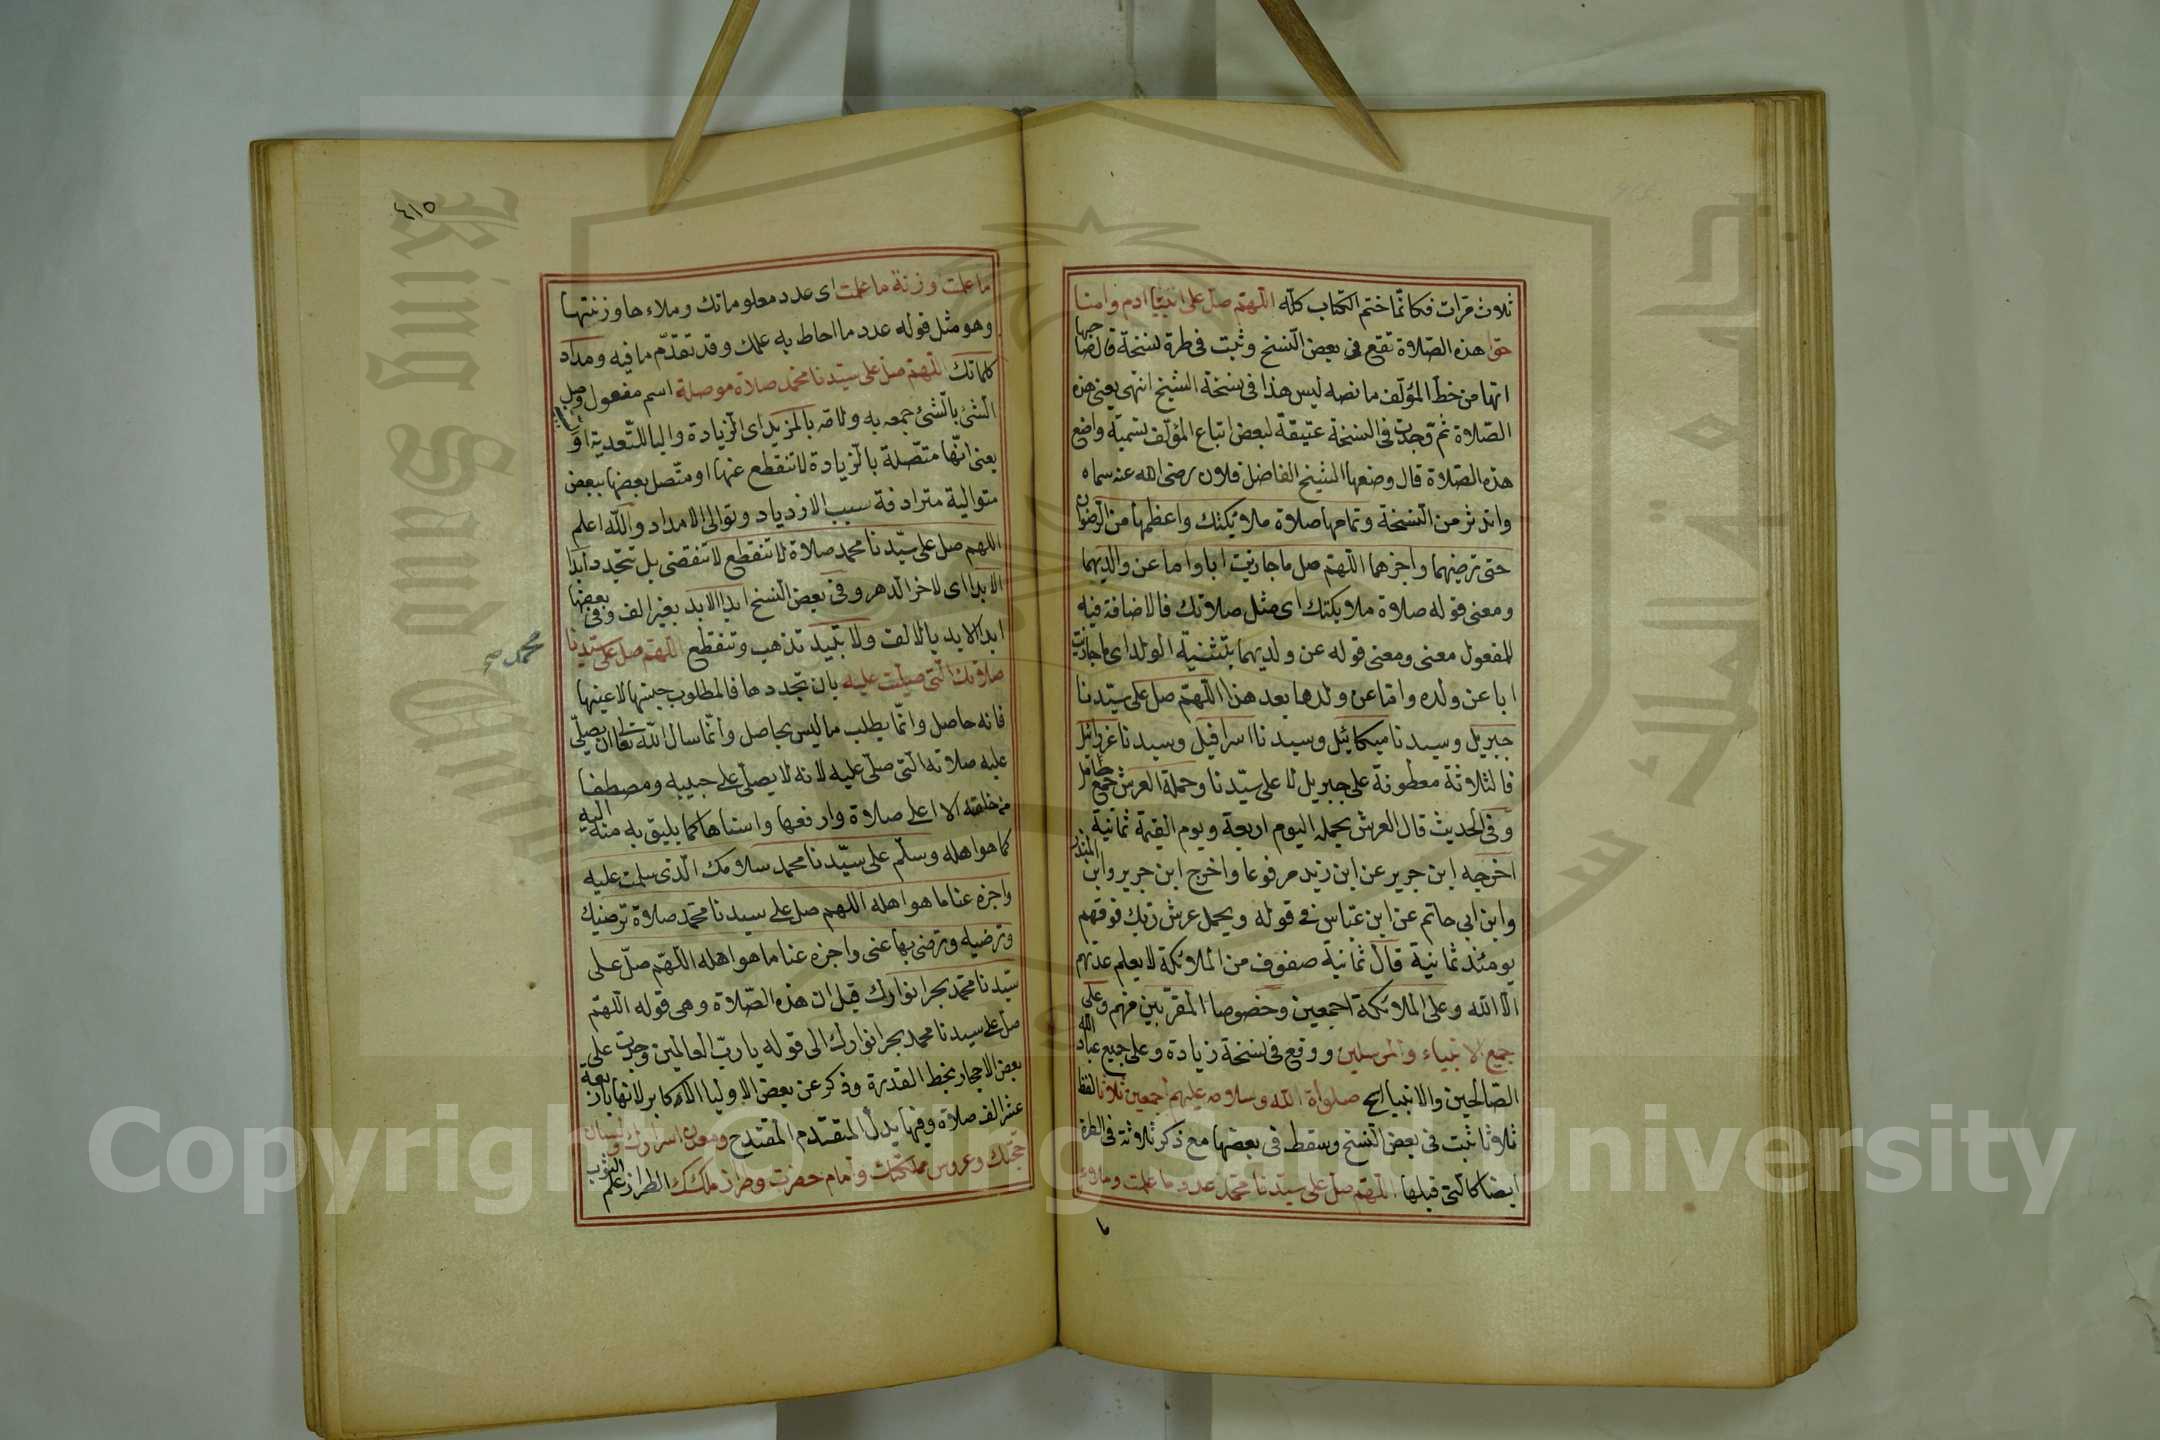 ثلاث مرات فكانما ختم الكتاب كله اللهم صل على ابينا ادم وامنا
حوا هذه الصلاة تقع في بعض النسخ وثبت في طرة نسخة قال صاحبها
انها من خط المؤلف ما نصه ليس هذا في نسخة الشيخ انتهى يعني هذه
الصلاة ثم وجدت في النسخة عتيقة لبعض اتباع المؤلف تسمية واضع
هذه الصلاة قال وضعها الشيخ الفاضل فلان رضي الله عنه سماه
واندثر من النسخة وتمامها صلاة ملائكتك واعظمها من الرضوان
حتى ترضيهما واجزهما اللهم صل ما جازيت ابا واما عن والديهما
ومعنى قوله صلاة ملايكتك اي مثل صلاتك فالاضافة فيه
للمفعول معنى ومعنى قوله عن ولديهما بتثنية الولد اي ما جازيت
ابا عن ولده واما عن ولدها بعد هذا اللهم صل على سيدنا
جبريل وسيدنا ميكائيل وسيدنا اسرافيل وسيدنا عزرائيل
فالثلاثة معطوفة على جبريل لا على سيدنا وحملة العرش جمع حامل
وفي الحديث قال العرش يحمله اليوم اربعة ويوم القيمة ثمانية
اخرجه ابن جرير عن ابن زيد مرفوعا واخرج ابن جرير وابن المنذر
وابن ابي حاتم عن ابن عباس في قوله ويحمل عرش ربك فوقهم
يومئذ ثمانية قال ثمانية صفوف من الملائكة لا يعلم عدتهم
الا الله وعلى الملائكة اجمعين وخصوصا المقربين منهم وعلى
جميع الانبياء والمرسلين ووقع في نسخة زيادة وعلى جميع عباد الله
الصالحين والانبيا الخ صلواة الله وسلامه عليهم اجمعين ثلاثا لفظ
ثلاثا ثبت في بعض النسخ وسقط في بعضها مع ذكر ثلاثة في الطرة
ايضا كالتي قبلها اللهم صل على سيدنا محمد عدد ما علمت وملاء
ما
٤١٥
ما علمت وزنة ما علمت اي عدد معلوماتك وملاءها وزنتها
وهو مثل قوله عدد ما احاط به علمك وقد تقدم ما فيه ومداد
كلماتك اللهم صل على سيدنا محمد صلاة موصلة اسم مفعول وصل
الشئ بالشئ جمعه به ولاقه بالمزيد اي الزيادة واليا للتعدية او
يعني انها متصلة بالزيادة لا تنقطع عنها او متصل بعضها ببعض
متوالية مترادفة سبب الازدياد وتوالي الامداد والله اعلم
اللهم صل على سيدنا محمد صلاة لا تنقطع لا تنقضي بل تتجدد ابدا
الابد اي لاخر الدهر وفي بعض النسخ ابد الابد بغير الف وفي بعضها
ابدا لابد بالالف ولا تبيد تذهب وتنقطع اللهم صل على سيدنا
محمد صح
صلاتك التي صليت عليه بان تجددها فالمطلوب جنسها لا عينها
فانه حاصل وانما يطلب ما ليس بحاصل وانما سال الله تعالى ان يصلي
عليه صلاته التي صلى عليه لانه لا يصلي على حبيبه ومصطفا
من خلقه الا اعلى صلاة وارفعها واسناها كما يليق به منه اليه
كما هو اهله وسلم على سيدنا محمد سلامك الذي سلمت عليه
واجزه عنا ما هو اهله اللهم صل على سيدنا محمد صلاة ترضيك
وترضيه وترضى بها عني واجزه عنا ما هو اهله اللهم صل على
سيدنا محمد بحر انوارك قيل ان هذه الصلاة وهي قوله اللهم
صل على سيدنا محمد بحر انوارك الى قوله يا رب العالمين وجدت على
بعض الاحجار بخط القدرة وذكر عن بعض الاوليا الاكابر لانها باربعة
عشر الف صلاة وفيها يدل المتقدم المقتدح ومعدن اسرارك ولسان
حجتك وعروس مملكتك وامام حضرت وطراز ملكك الطراز علم الثوب
Copyright © King Saud University